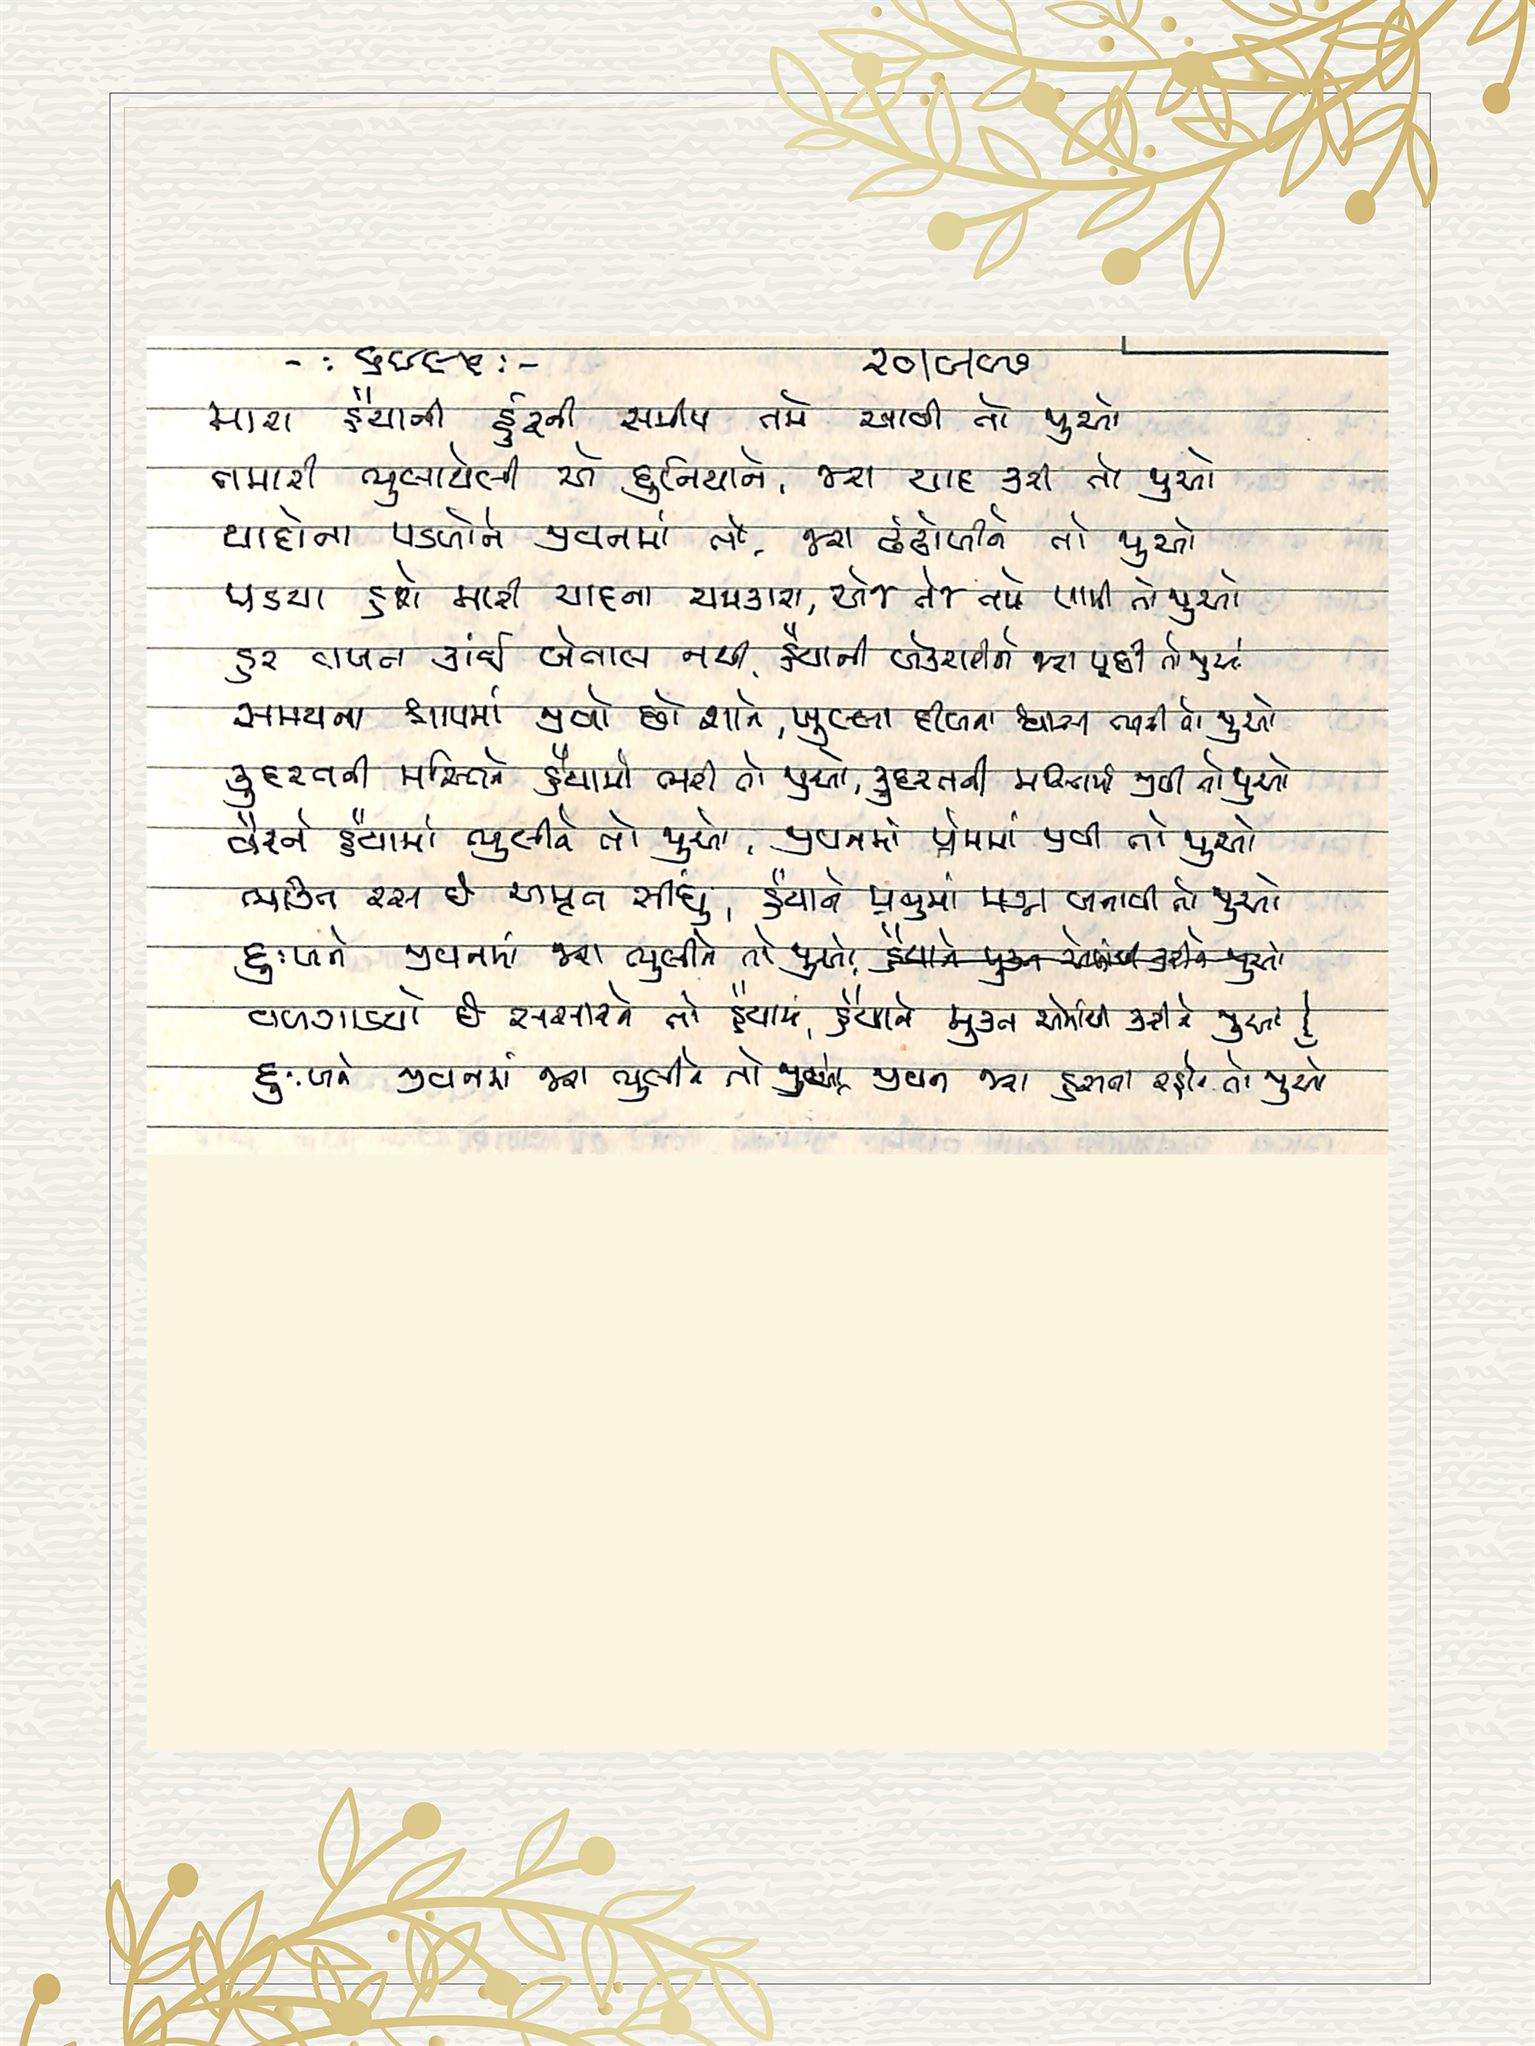 ૨૦|૯|૯૭
મારા હૈયાની હુંફની સમીપ તમે આવી તો જુઓ
તમારી ભુલાયેલી એ દુનિયાને, જરા યાદ કરી તો જુઓ
યાદોના પડળોને જીવનમાં તો, જરા ઢંઢોળીને તો જુઓ
પડયા હશે મારી યાદના ચમકારા, એજ તેજ તમે પામી તો જુઓ
હર વાજન કાંઈ બેતાલ નથી, હૈયાની બેકરારીને જરા પૂછી તો જુઓ
સમયના શ્રાપમાં જીવો છો શાને, ખુલ્લા દીલના શ્વાસ ભરી તો જુઓ
કુદરતની મસ્તિને હૈયામાં ભરી તો જુઓ, કુદરતની મસ્તિમાં જીવી તો જુઓ
વૈરને હૈયામાં ભુલીને તો જુઓ, જીવનમાં પ્રેમમાં જીવી તો જુઓ
ભક્તિ રસ છે અમૃત સીંધુ, હૈયાને પ્રભુમાં મગ્ન બનાવી તો જુઓ
દુઃખને જીવનમાં જરા ભુલીને તો જુઓ, હૈયાને મુક્ત એમાંથી કરીને જુઓ
વળગાડયો છે સંસારને તો હૈયામાં, હૈયાને મુક્ત એમાંથી કરીને જુઓ
દુઃખને જીવનમાં જરા ભુલીને તો જુઓ, જીવન જરા હસતા રહીને તો જુઓ